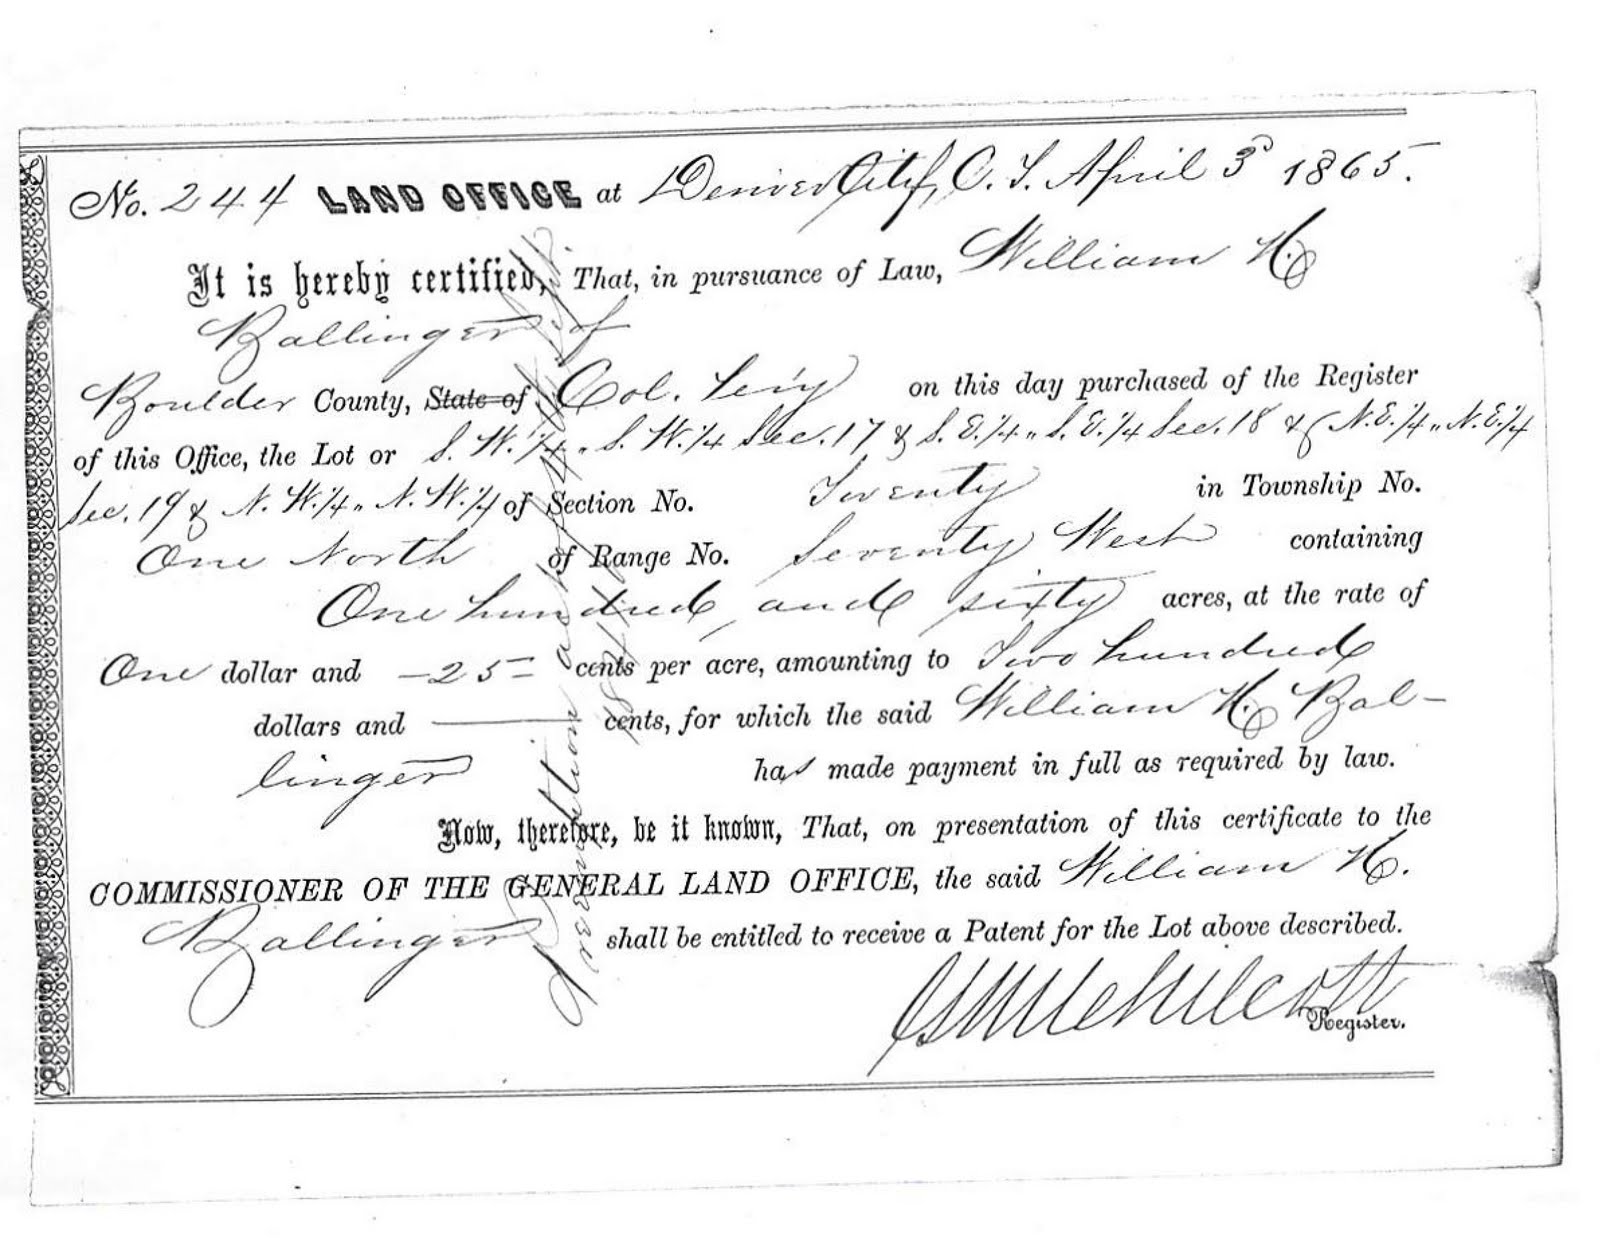 No. 244 LAND OFFICE at Denver City, C. T. April 3d 1865.
It is hereby certified, That, in pursuance of Law, William H.
Ballinger of
Boulder County, State of Col. Tery on this day purchased of the Register
of this Office, the Lot or S. W. 1/4 " S. W. 1/4 Sec. 17 & S. E. 1/4 " S. E. 1/4 Sec. 18 & N. E. 1/4 " N. E. 1/4
Sec. 19 & N. W. 1/4 " N. W. 1/4 of Section No. Twenty in Township No.
One North of Range No. Seventy West containing
One hundred and sixty acres, at the rate of
One dollar and -25- cents per acre, amounting to Two hundred
dollars and — cents, for which the said William H. Bal-
linger has made payment in full as required by law.
Now, therefore, be it known, That, on presentation of this certificate to the
COMMISSIONER OF THE GENERAL LAND OFFICE, the said William H.
Ballinger shall be entitled to receive a Patent for the Lot above described.
Register.
Preemption act of